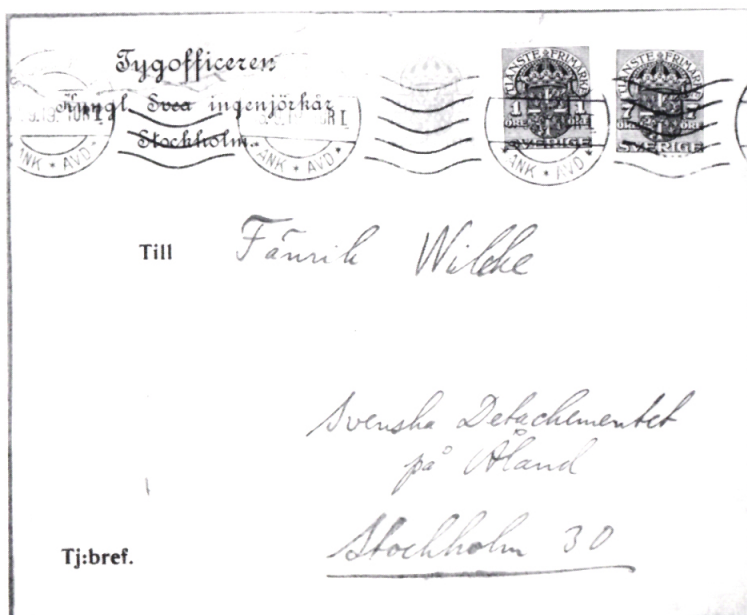 Tygofficeren
Kungl. Svea ingenjörkår
Stockholm.
TJÄNSTE FRIMÄRKE
1 1
ÖRE ÖRE
SVERIGE
TJÄNSTE FRIMÄRKE
7 7
ÖRE ÖRE
SVERIGE
ANK * AVD *
ANK * AVD *
ANK * AVD *
Till Fänrik Wilcke
Svenska Detachementet
på Åland
Stockholm 30
Tj:bref.